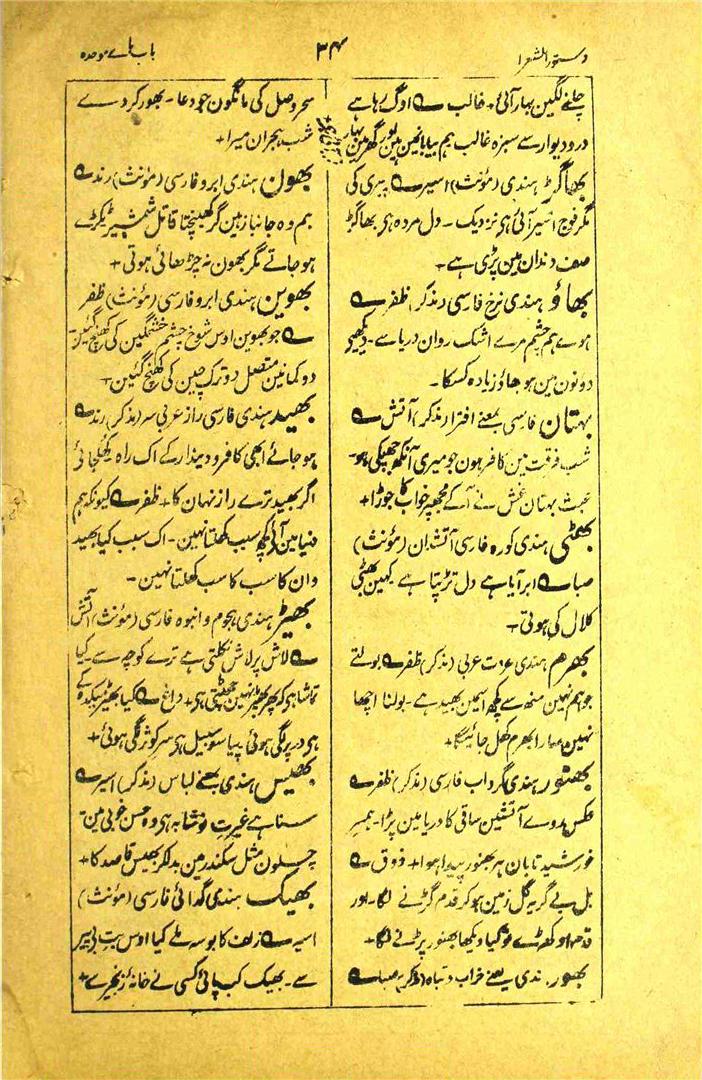 دستور الشعرا
۳۴
باب ہاے موحدہ
چلنے لگین بہار آئی + غالب ے اوگ رہا ہے
درودیوار سے سبزہ غالب ہم بیابانمین ہین اور گھرمین بہار آئی ہے +
بھاگڑ ہندی (مؤنث) اسیر ے پیری کی
مگر فوج اسیر آئی ہی نزدیک - دل مردہ ہی بھاگڑ
صف دندان مین پڑی ہے -
بھاؤ ہندی نرخ فارسی (مذکر) ظفر ے
ہوے ہم چشم مرے اشک روان دریا سے - دیکھیی
دونون مین ہو بھاؤ زیادہ کسکا -
بہتان فارسی بمعنے افترا (مذکر) آتش ے
شب فرقت مین کافر ہون جو میری آنکھ جھپکی ہو -
عبث بہتان غش نے آکے مجھپر خواب کا جوڑا +
بھٹی ہندی کورہ فارسی آتشدان (مؤنث)
صبا ے ابر آیا ہے دل تڑپتا ہے - کہین بھٹی
کلال کی ہوتی -
بھرم ہندی عزت عربی (مذکر) ظفر ے بولتے
جو ہم نہین منھ سے کچھ اسمین بھید ہے - بولنا اچھا
نہین ہمارا بھرم کھل جائیگا +
بھنور ہندی گرداب فارسی (مذکر) ظفر ے
عکس روے آتشین ساقی کا دریا مین پڑا - ہمسر
خورشید تابان ہر بھنور پیدا ہوا + ذوق ے
بل بے گریہ گل زمین ہو کر قدم گڑنے لگا - اور
قدم اوکھڑے تو گیا دیکھا بھنور پڑنے لگا +
بھور ہندی بمعنے خراب و تباہ (مذکر) صبا ے
سحر وصل کی مانگون جو دعا - بھور کردے
شب ہجران میرا +
بھون ہندی ابرو فارسی (مؤنث) رند ے
ہم وہ جانباز ہین گر کھینچتا قاتل شمشیر ٹکڑے
ہو جاتے مگر بھون نہ چڑھائی ہوتی +
بھوین ہندی ابرو فارسی (مؤنث) ظفر
ے جو بھوین اوس شوخ چشم خشمگین کی کھنچ گئین -
دو کمانین متصل دو ترک چین کی کھنچ گئین -
بھید ہندی فارسی راز عربی سر (مذکر) رند ے
ہو جائے ابھی کافر و دیندار کے اک راہ کھل جائی
اگر بھید ترے راز نہان کا + ظفر ے کیونکہ ہم
دنیا مین آئی کچھ سبب کھلتا نہین - اک سبب کیا بھید
وان کا سب کا سب کھلتا نہین -
بھیڑ ہندی ہجوم و انبوہ فارسی (مؤنث) آتش
ے لاش پر لاش نکلتی ہے ترے کوچہ سے - کیا
تماشا ہی کہ پھر بھیڑ نہین چھٹتی ہی + داغ ے کیا بھیڑ میکدہ کے
ہی در پر لگی ہوئی پیاسو سبیل ہی سر کوثر لگی ہوئی +
بھیس ہندی بمعنے لباس (مذکر) اسیر ے
سنا ہے غیرت نوشابہ ہی وہ حسن خوبی مین -
چلون مثل سکندر مین بدلکر بھیس قاصد کا +
بھیک ہندی گدائی فارسی (مؤنث)
اسیر ے زلف کا بوسہ ملے کیا اوس بت بے پیر
سے - بھیک کب پائی کسی نے خانہ زنجیر سے +